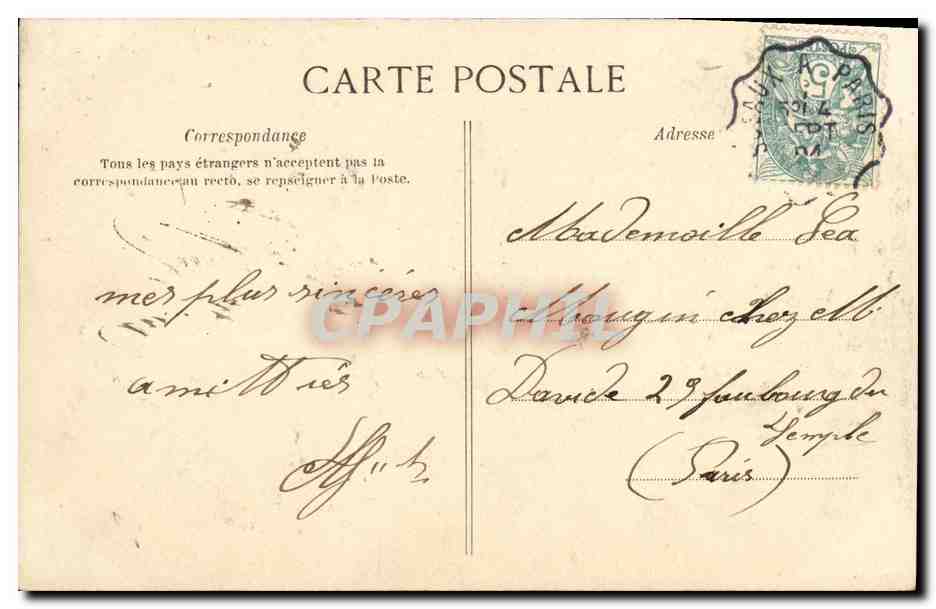 CARTE POSTALE
Correspondance
Tous les pays étrangers n'acceptent pas la
correspondance au recto, se renseigner à la Poste.
mes plus sincères
amittiés
Adresse
A PARIS
4
SEPT
04
Mademoiselle Lea
Mougin chez M
Davide 29 faubourg du
Temple
(Paris)
CPAPHIL